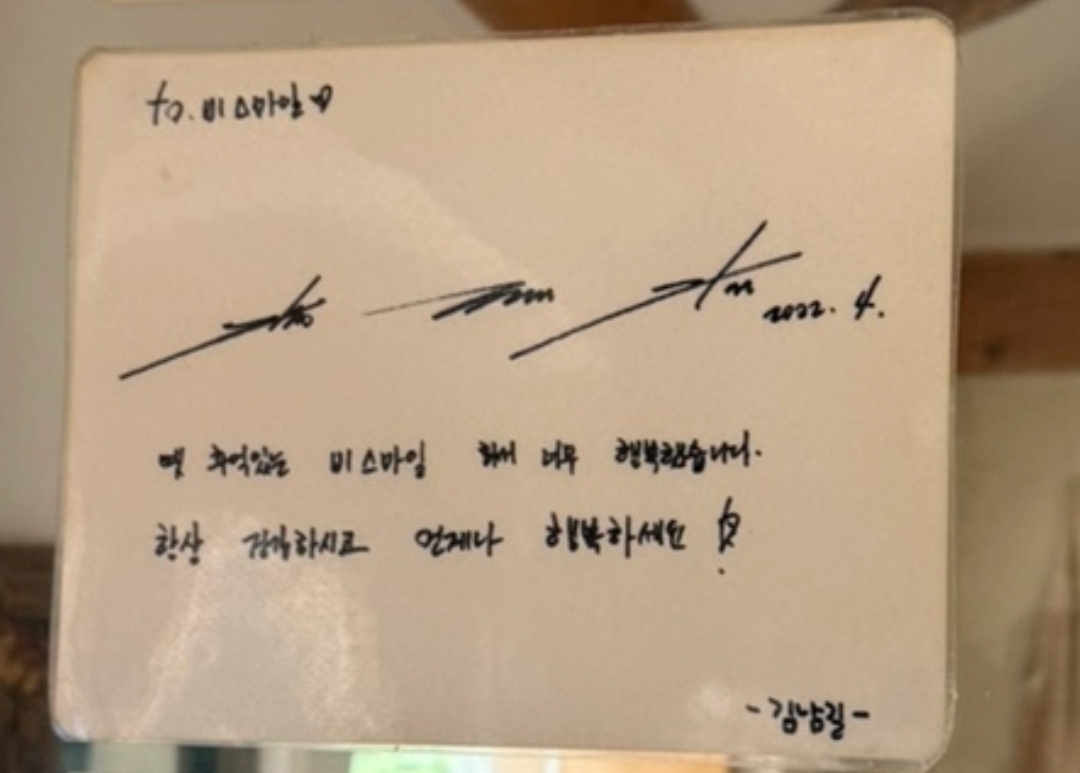 to. 비스마일♡
2022. 4.
옛 추억있는 비스마일 와서 너무 행복했습니다.
항상 건강하시고 언제나 행복하세요!
-김남길-